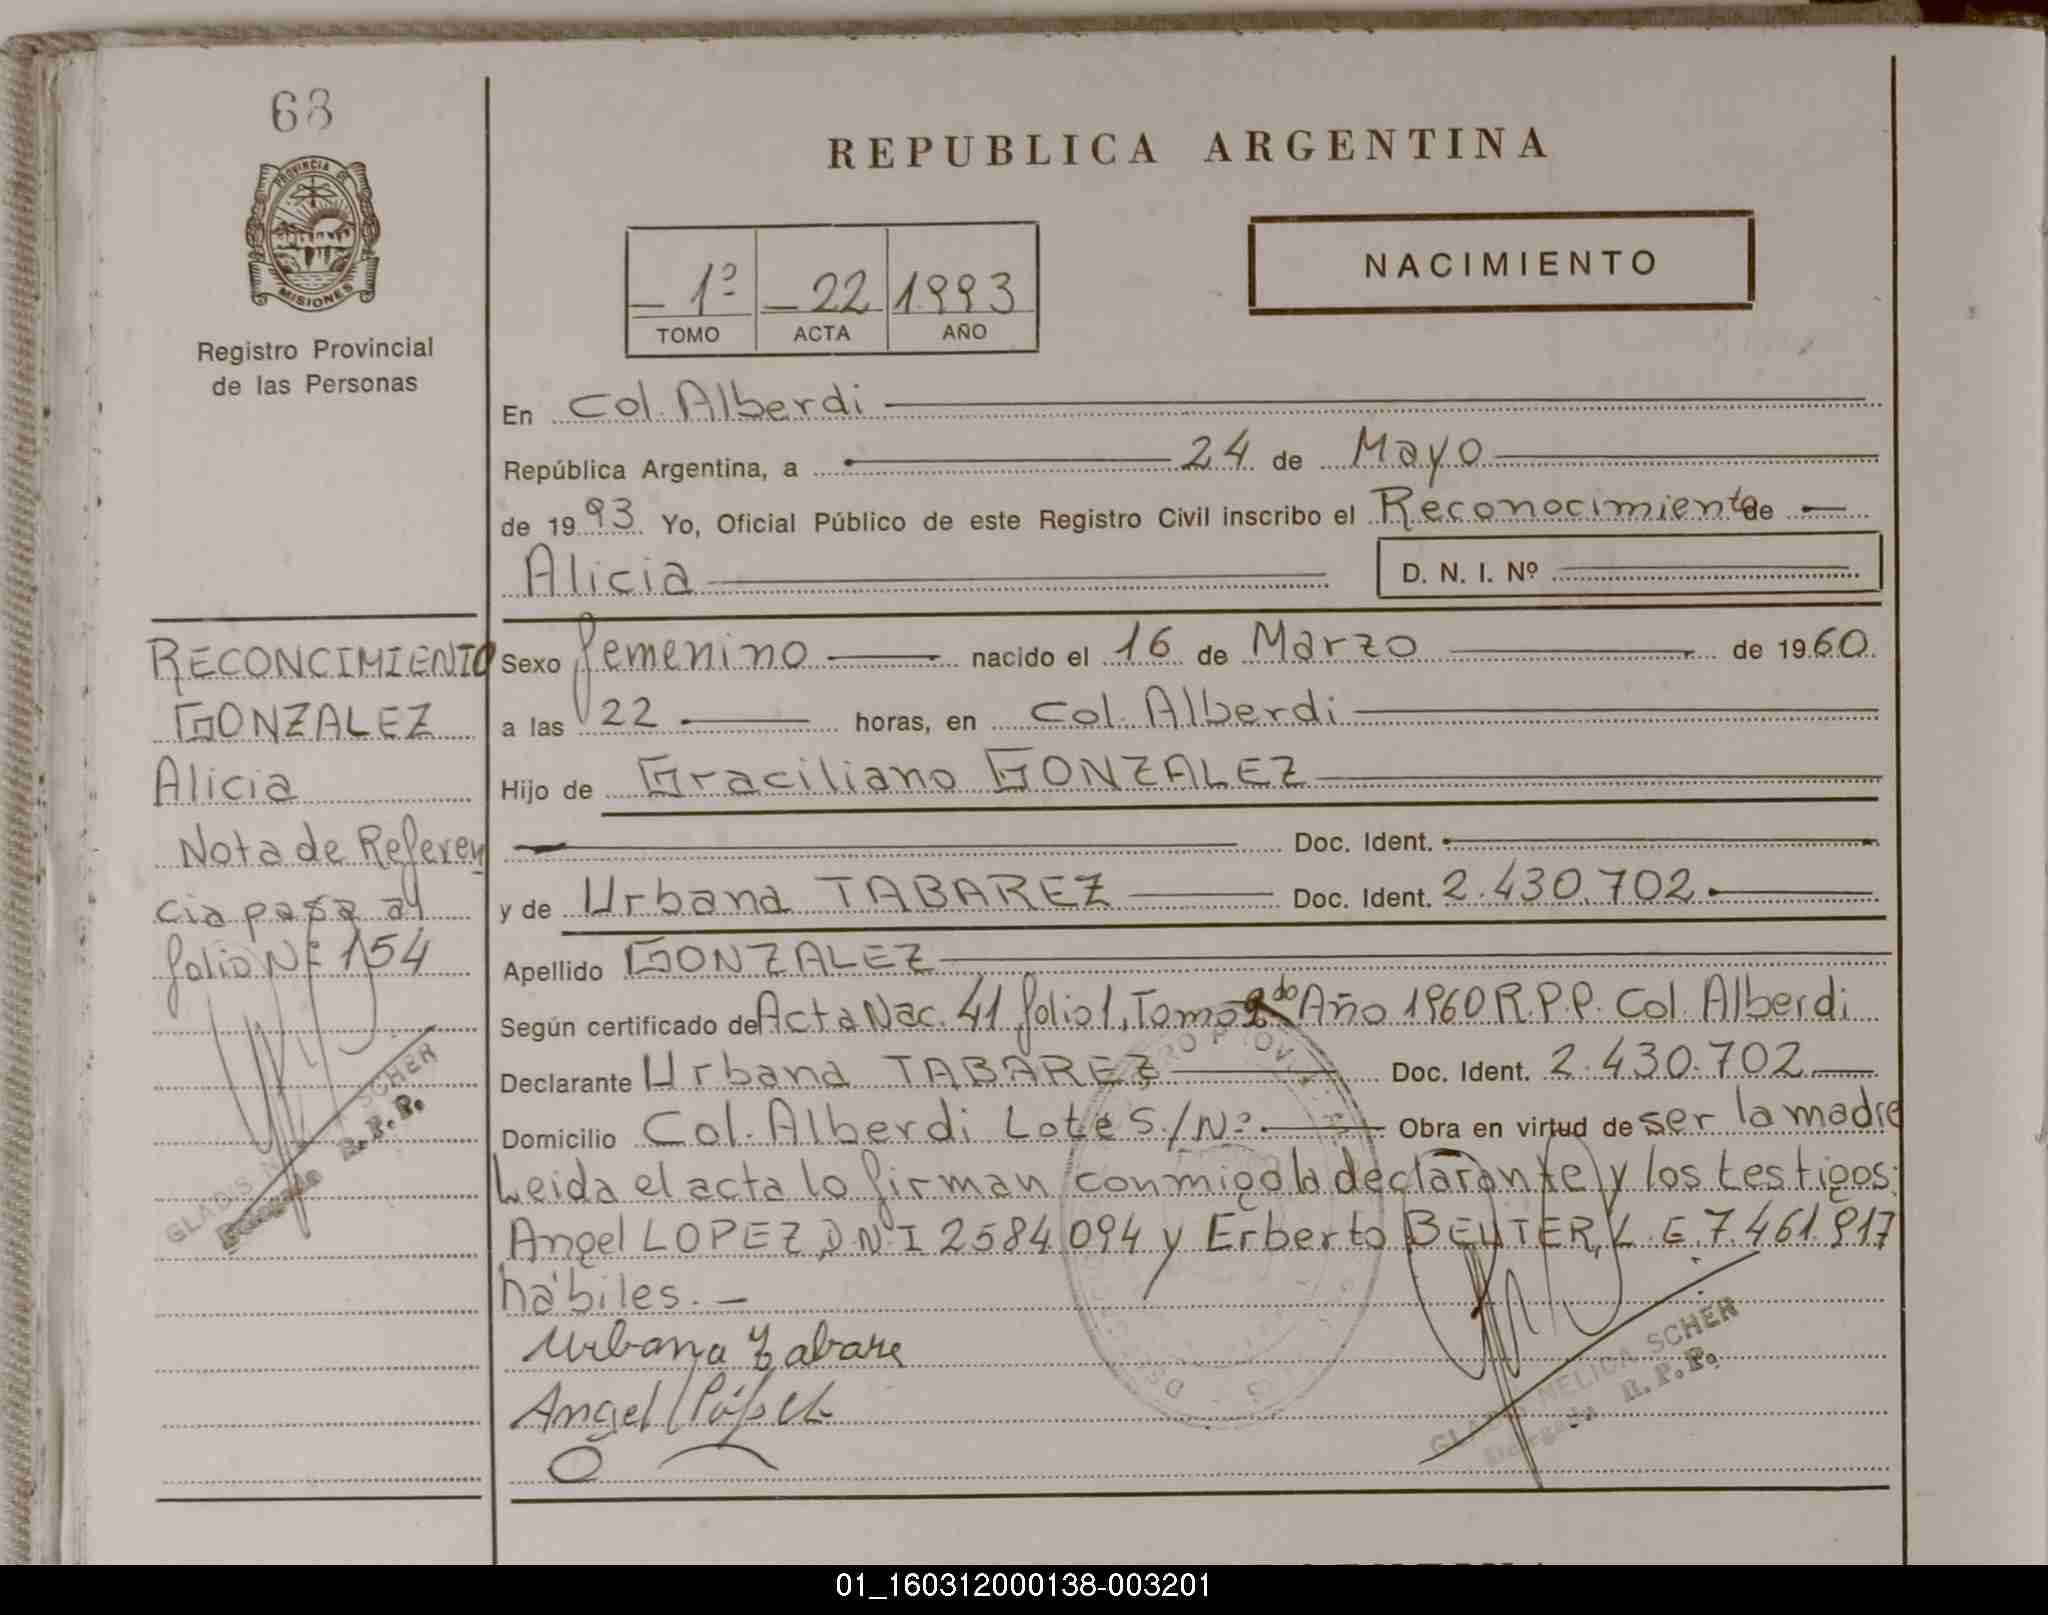 68
PROVINCIA DE
MISIONES
Registro Provincial
de las Personas
REPUBLICA ARGENTINA
1º 22 1993
TOMO ACTA AÑO
NACIMIENTO
En Col. Alberdi
República Argentina, a 24 de Mayo
de 1993 Yo, Oficial Público de este Registro Civil inscribo el Reconocimiento de
Alicia D. N. I. Nº
RECONCIMIENTO
GONZALEZ
Alicia
Nota de Referen
cia pasa al
folio Nº 154
GLADIS SCHER
R.P.P.
Sexo femenino nacido el 16 de Marzo de 1960.
a las 22 horas, en Col. Alberdi
Hijo de Graciliano GONZALEZ
Doc. Ident.
y de Urbana TABAREZ Doc. Ident. 2.430.702
Apellido GONZALEZ
Según certificado de Acta Nac. 41 folio 1, Tomo 2do Año 1960 R.P.P. Col. Alberdi
Declarante Urbana TABAREZ Doc. Ident. 2.430.702
Domicilio Col. Alberdi Lote S/Nº Obra en virtud de ser la madre
Leida el acta lo firman conmigo la declarante y los testigos:
Angel LOPEZ, D.N.I 2584.094 y Erberto BEUTER, L.E. 7.461.917
hábiles. -
Urbana Tabare
Angel
SCHER
R.P.P.
01_160312000138-003201